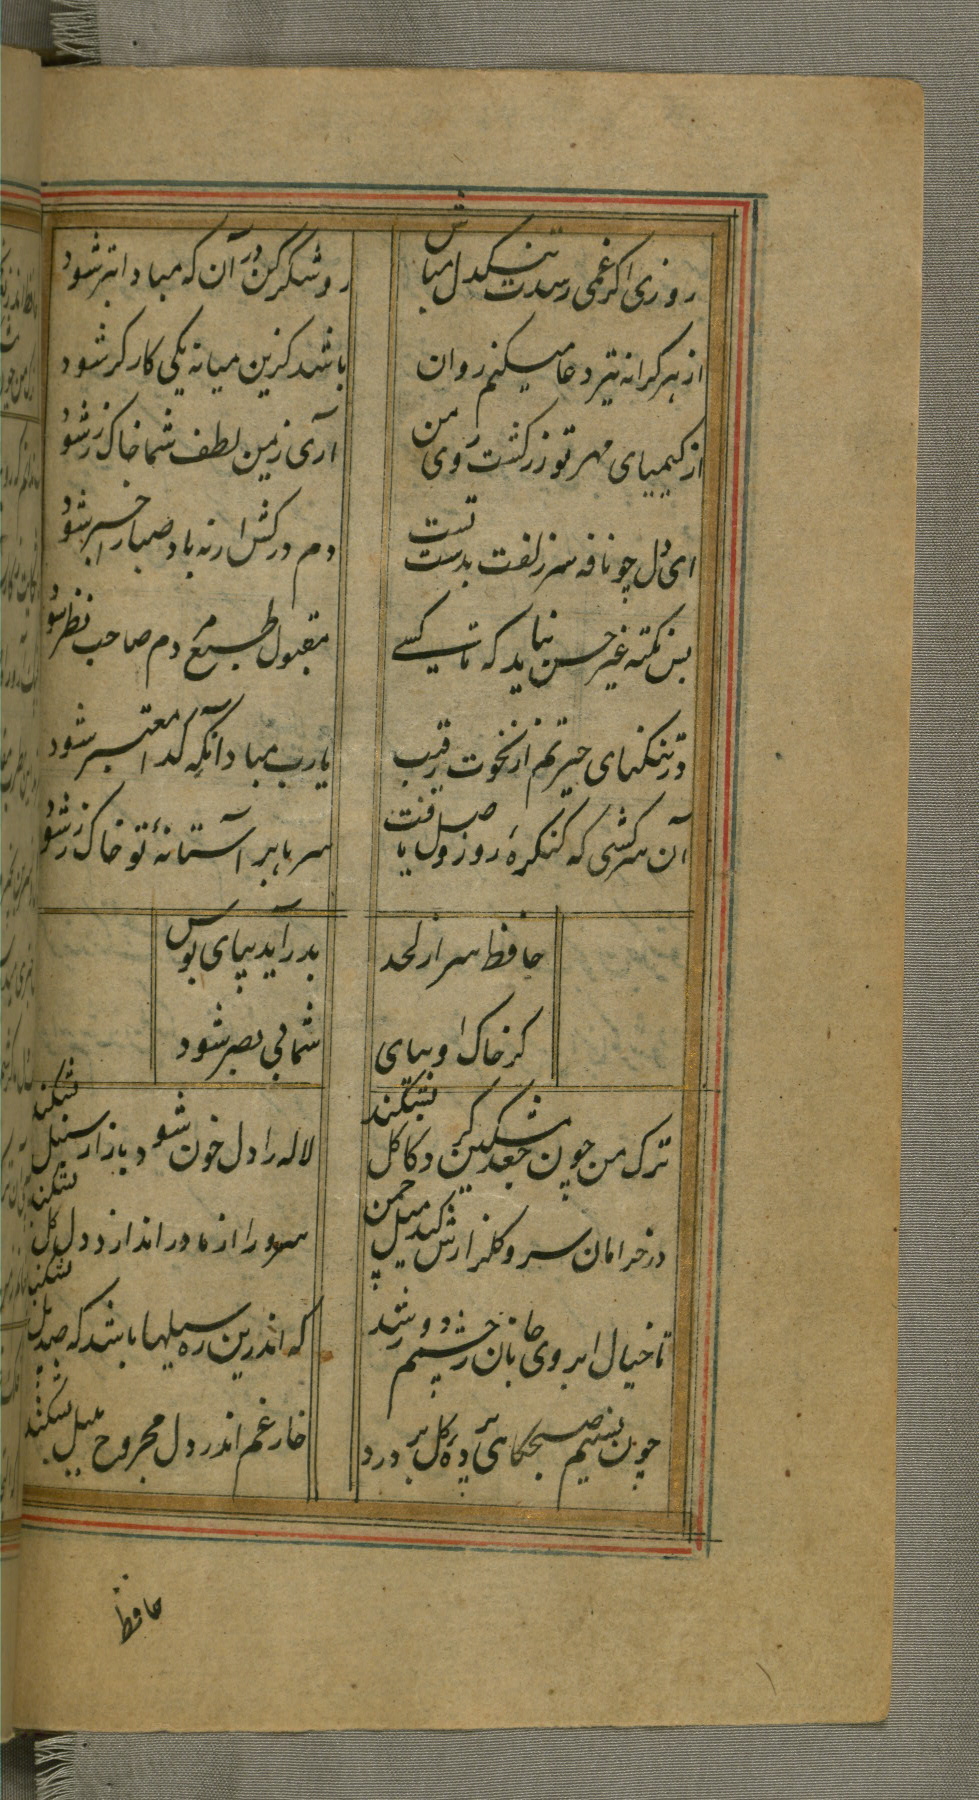 روزی اگر غمی رسدت تنگدل مباش
رو شکر کن در آن که مبادا بتر شود
از هر کرانه تیر دعا میکنم روان
باشد کزین میانه یکی کارگر شود
از کیمیای مهر تو زر گشت روی من
آری زمین لطف شما خاک زر شود
ای دل چو نافه سر زلفت بدست تست
دم درکش ار نه باد صبا را خبر شود
بس نکته غیر حسن نباید که تا کسی
مقبول طبع مردم صاحب نظر شود
در تنگنای حیرتم از نخوت رقیب
یارب مباد آنکه گدا معتبر شود
آن سرکشی که کنکرهٔ روز وصل یافت
سرها بر آستانهٔ تو خاک زر شود
حافظ سر از لحد
بدر آید بپای بوس
گر خاک او بپای
شما پی بصر شود
ترک من چون جعد مشکین گرد کاکل بشکند
لاله را دل خون شود بازار سنبل بشکند
در خرامان سرو گلزارش کند میل چمن
سرو را از پا در اندازد دل گل بشکند
تا خیال ابروی جانان ز چشمم دور شد
که اندرین ره سیلها باشد که صد پل بشکند
چون نسیم صبحگاهی پردهٔ گل بر درد
خار غم اندر دل مجروح بلبل بشکند
حافظ